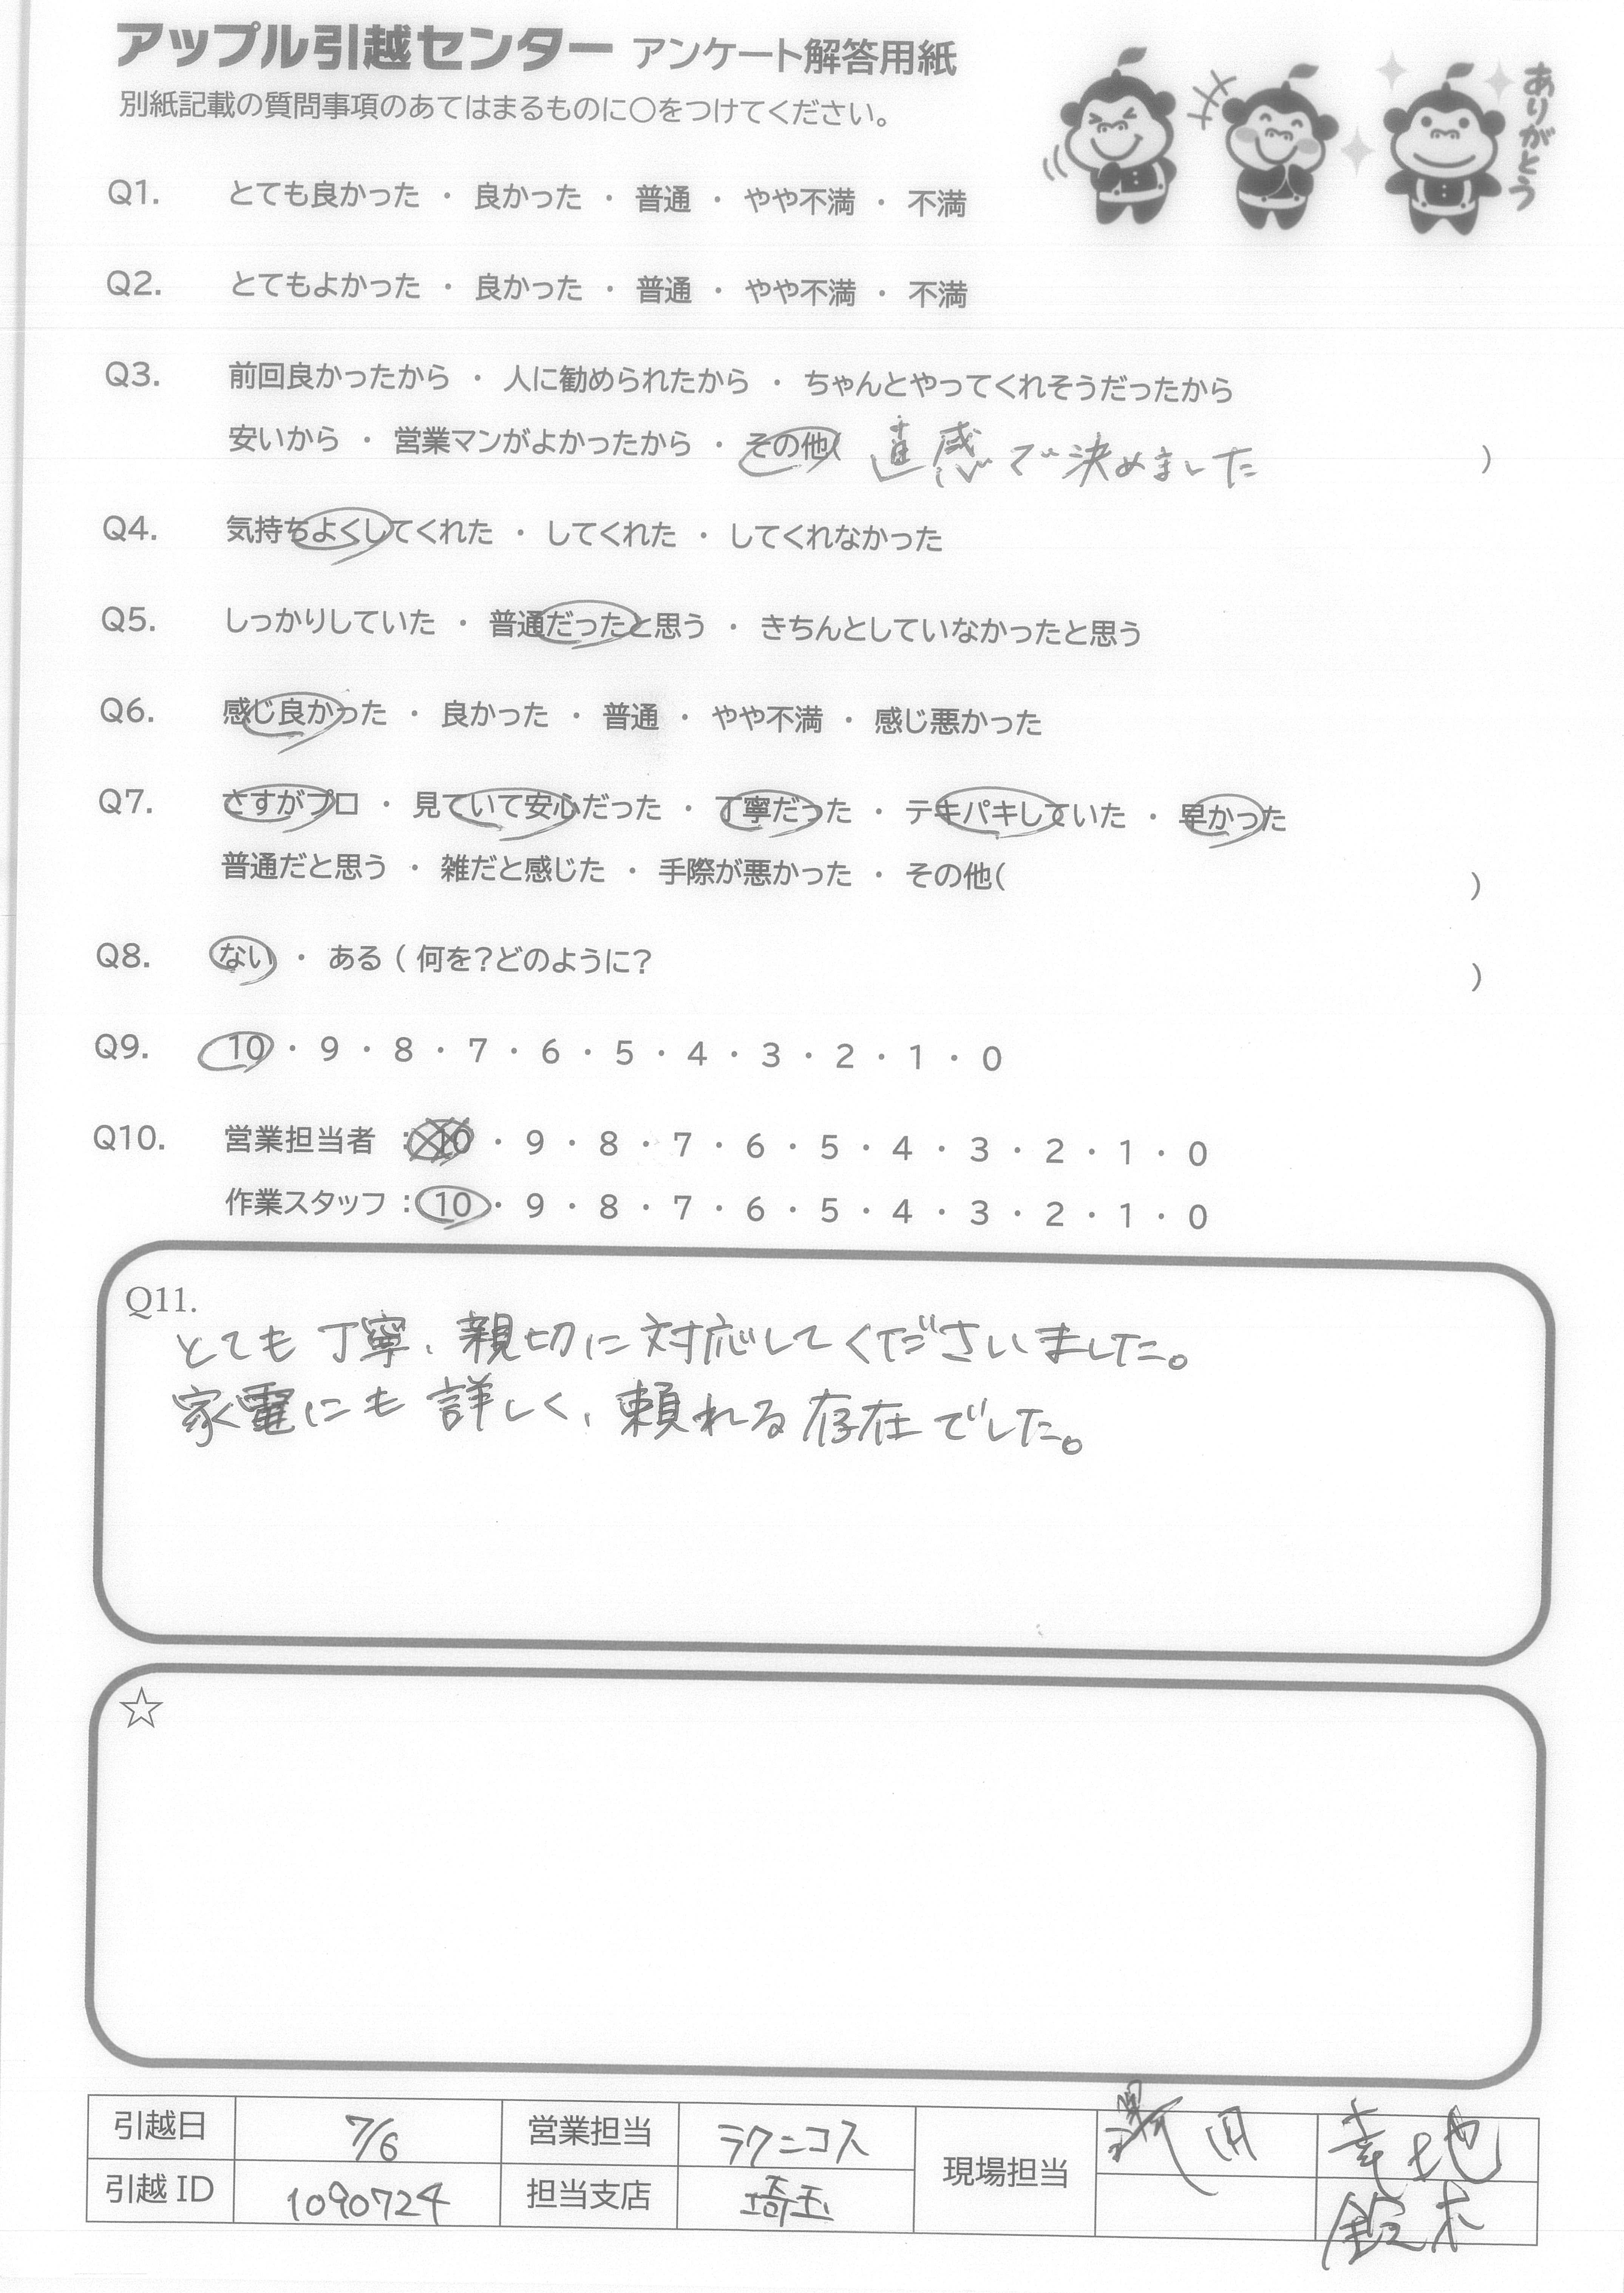 アップル引越センター アンケート解答用紙
別紙記載の質問事項のあてはまるものに〇をつけてください。
ありがとう
Q1. とても良かった ・ 良かった ・ 普通 ・ やや不満 ・ 不満
Q2. とてもよかった ・ 良かった ・ 普通 ・ やや不満 ・ 不満
Q3. 前回良かったから ・ 人に勧められたから ・ ちゃんとやってくれそうだったから
安いから ・ 営業マンがよかったから ・ その他( 直感で決めました )
Q4. 気持ちよくしてくれた ・ してくれた ・ してくれなかった
Q5. しっかりしていた ・ 普通だったと思う ・ きちんとしていなかったと思う
Q6. 感じ良かった ・ 良かった ・ 普通 ・ やや不満 ・ 感じ悪かった
Q7. さすがプロ ・ 見ていて安心だった ・ 丁寧だった ・ テキパキしていた ・ 早かった
普通だと思う ・ 雑だと感じた ・ 手際が悪かった ・ その他( )
Q8. ない ・ ある ( 何を?どのように? )
Q9. 10 ・ 9 ・ 8 ・ 7 ・ 6 ・ 5 ・ 4 ・ 3 ・ 2 ・ 1 ・ 0
Q10. 営業担当者 : 10 ・ 9 ・ 8 ・ 7 ・ 6 ・ 5 ・ 4 ・ 3 ・ 2 ・ 1 ・ 0
作業スタッフ : 10 ・ 9 ・ 8 ・ 7 ・ 6 ・ 5 ・ 4 ・ 3 ・ 2 ・ 1 ・ 0
Q11.
とても丁寧、親切に対応してくださいました。
家電にも詳しく、頼れる存在でした。
☆
引越日 7/6 営業担当 ラクニコス 現場担当 幸地
引越 ID 1090724 担当支店 埼玉 鈴木